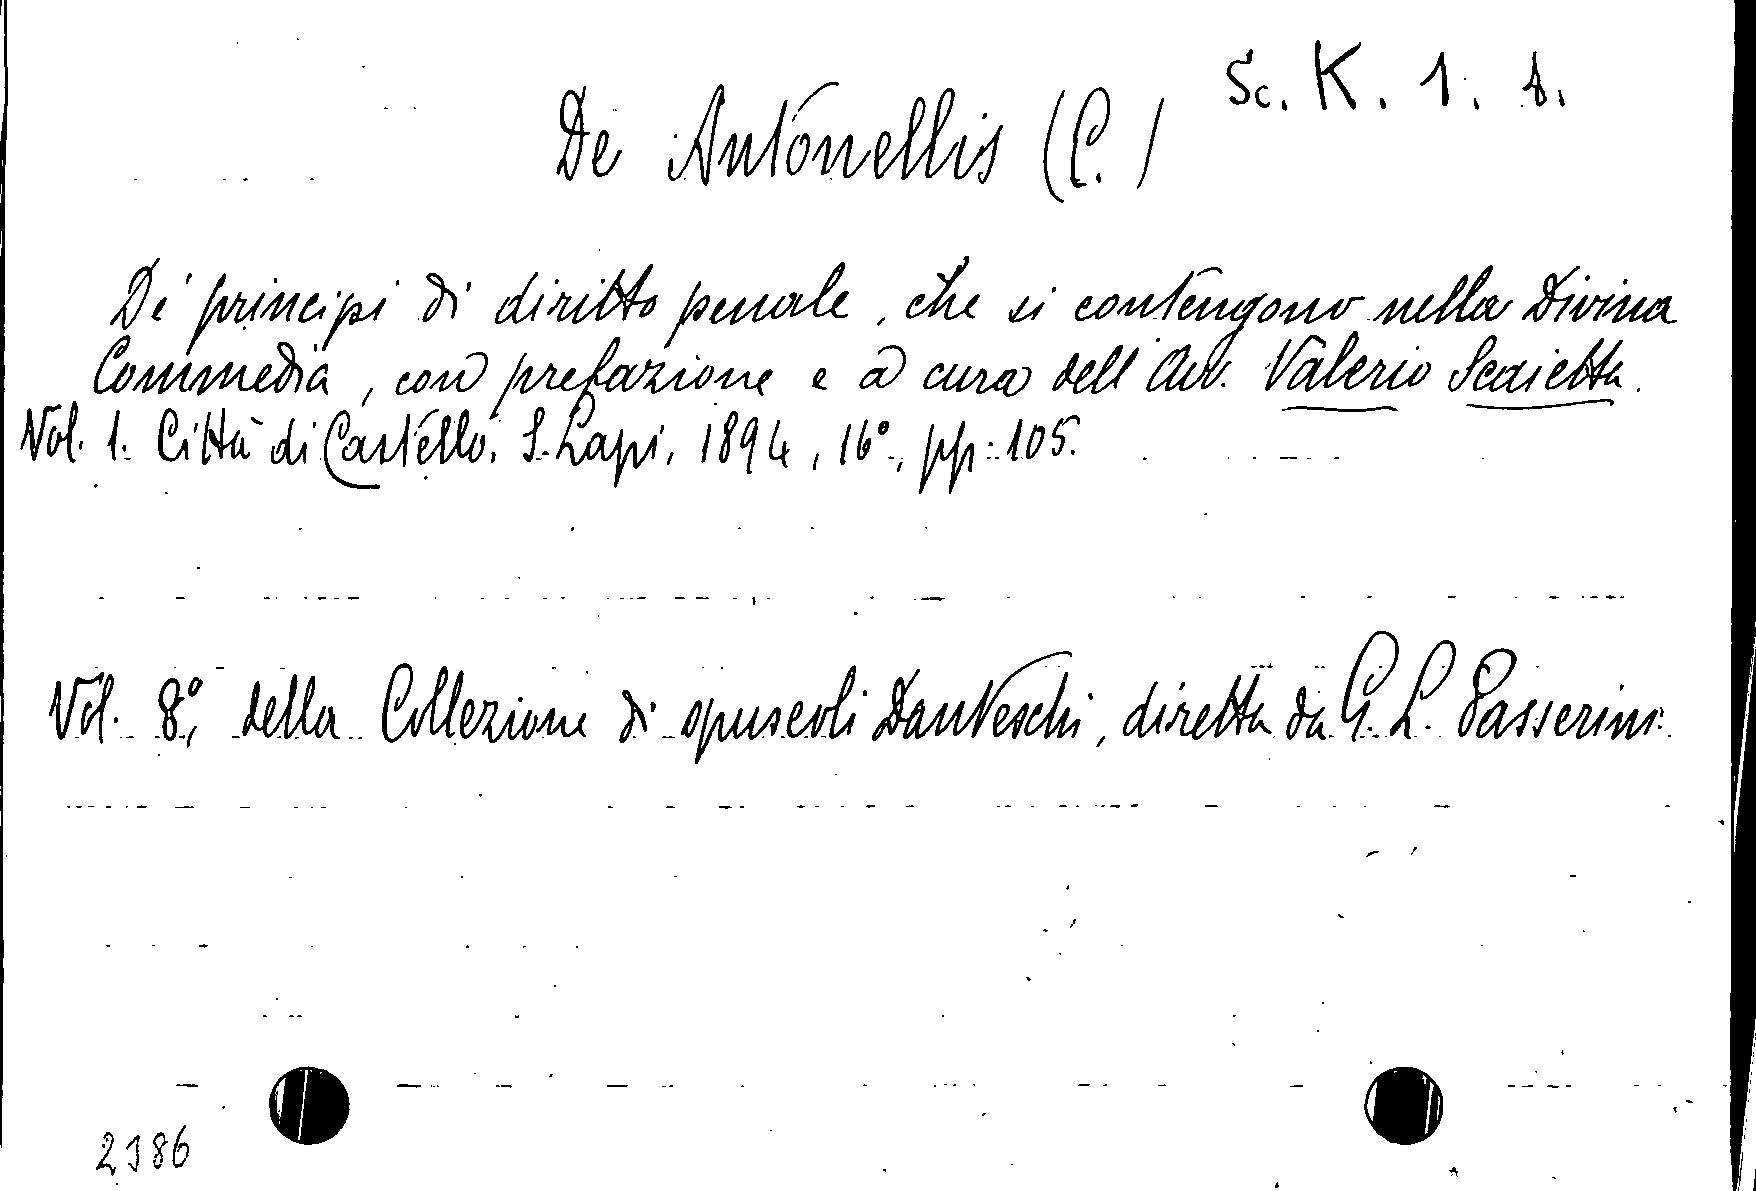 Sc. K. 1. 8.
De Antonellis (C.)
De' principi di diritto penale, che si contengono nella Divina
Commedia, con prefazione e a cura dell'Avv. Valerio Scaietta.
Vol. 1. Città di Castello. S. Lapi, 1894, 16°, pp. 105.
Vol. 8°, della Collezione di opuscoli Danteschi, diretta da G. L. Passerini.
2386